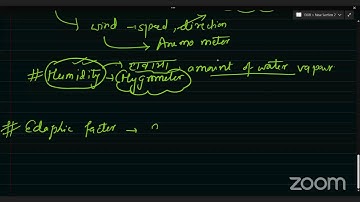 → wind → speed, direction
→ Anemo meter
# Humidity → amount of water vapour
→ Hygrometer
# Edaphic factor →
zoom